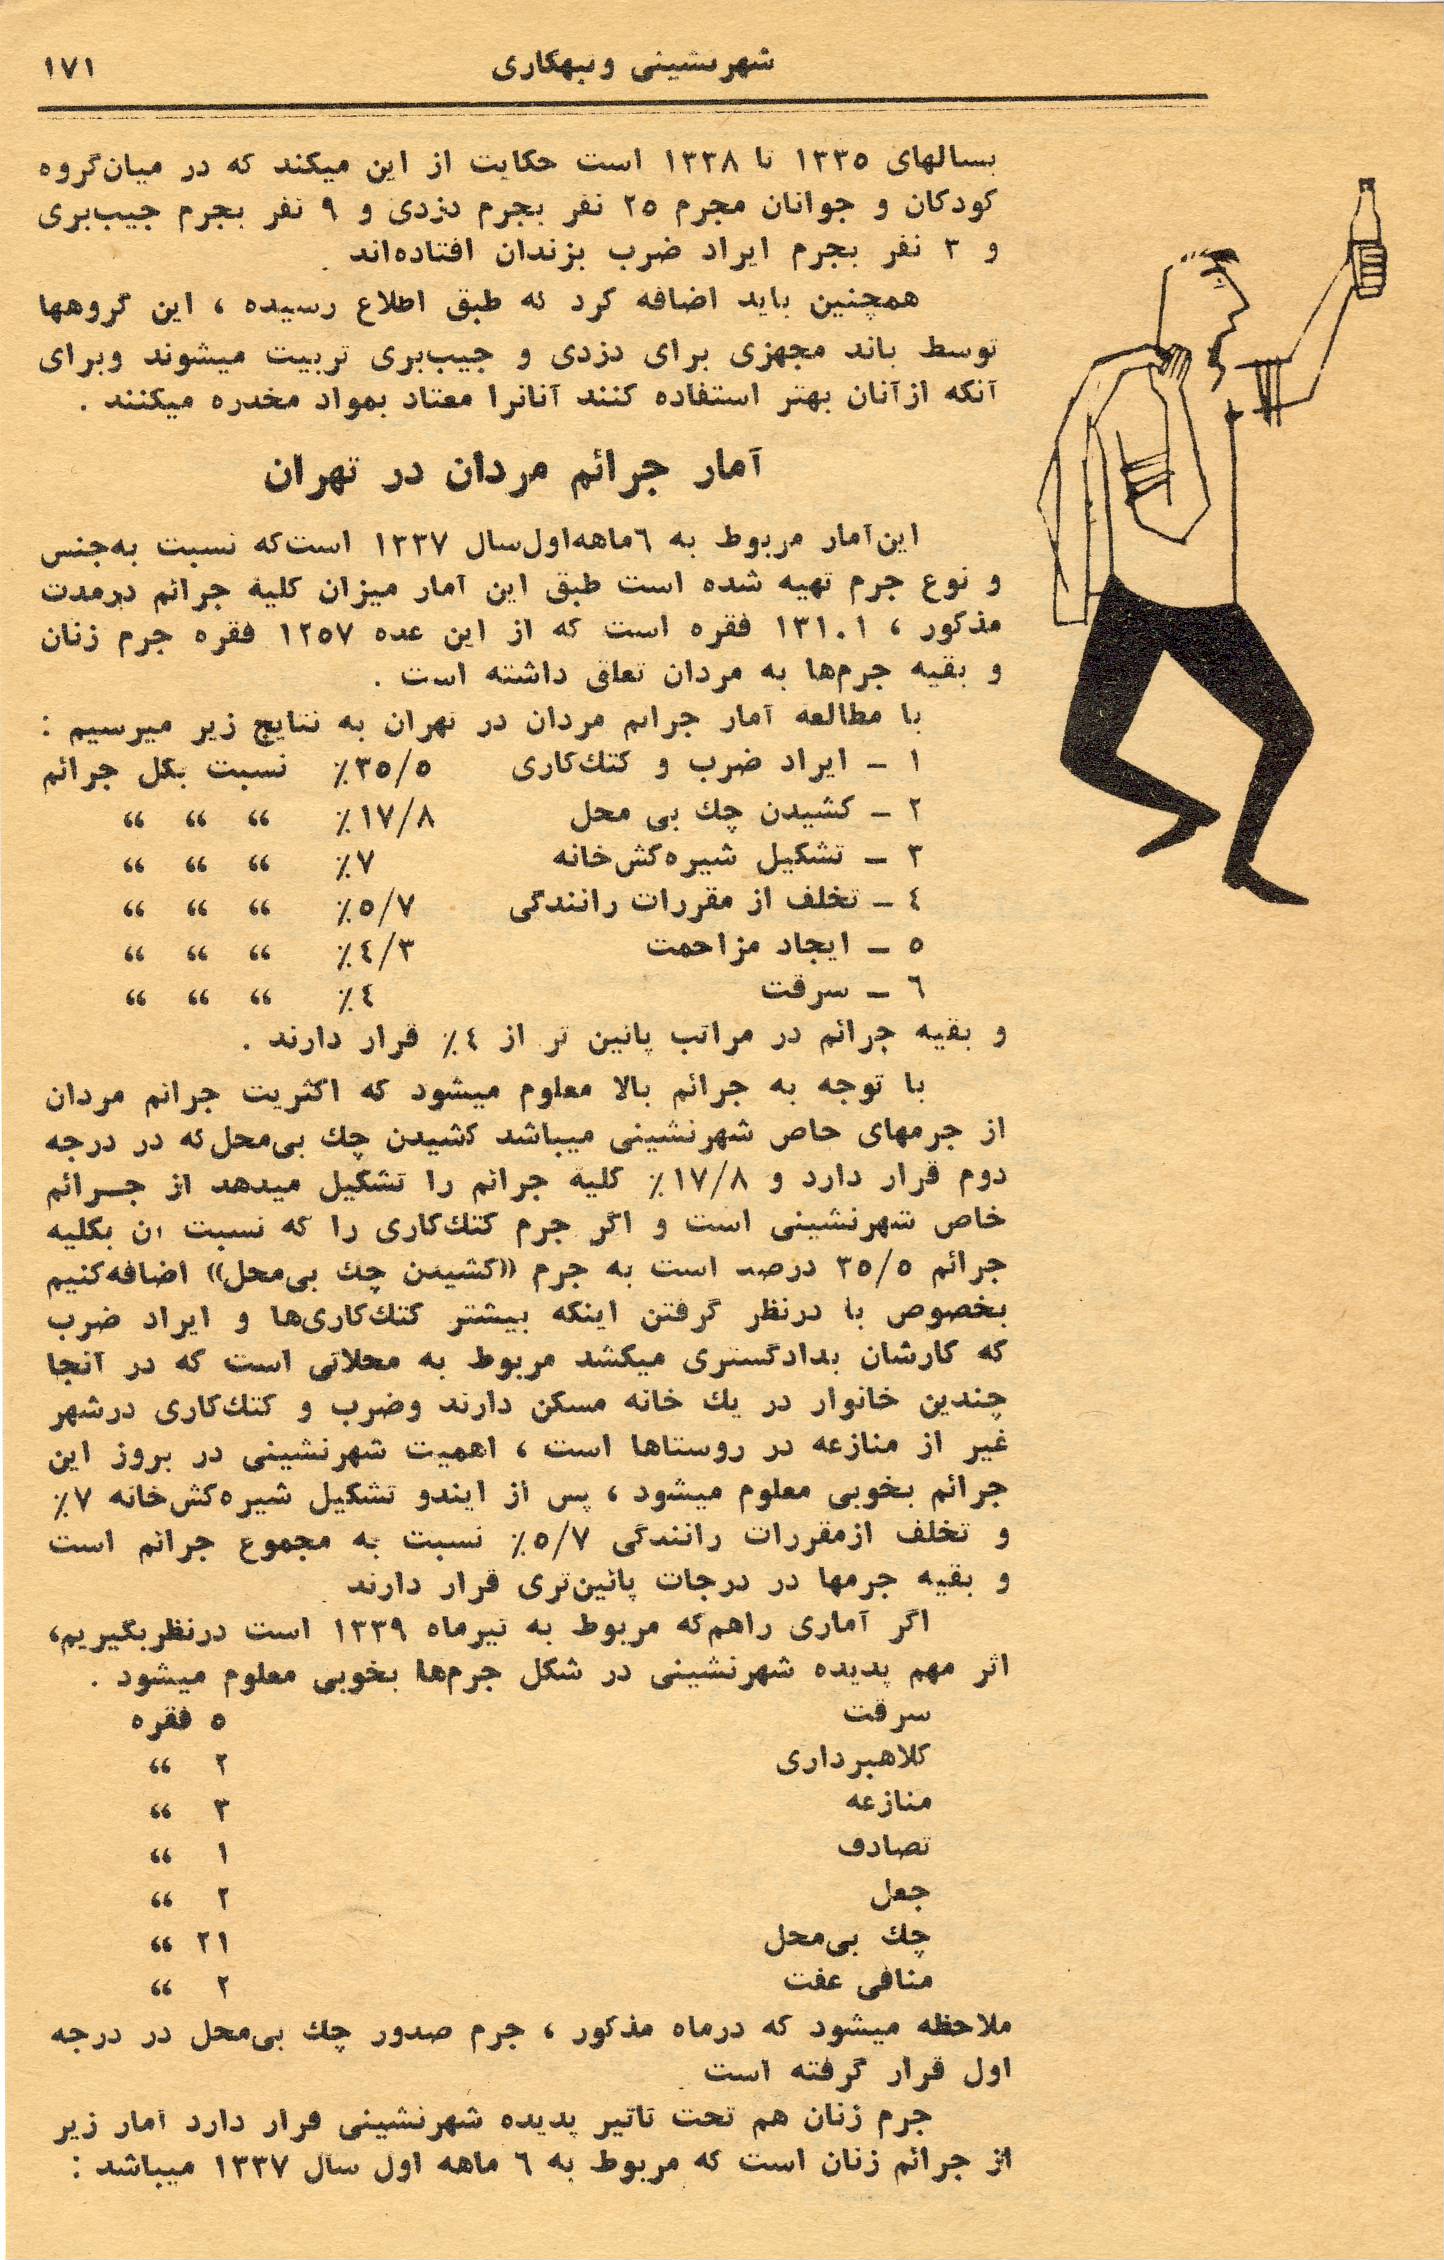 شهرنشینی و تبهکاری
۱۷۱
بسالهای ۱۳۳۵ تا ۱۳۳۸ است حکایت از این میکند که در میان‌گروه
کودکان و جوانان مجرم ۲۵ نفر بجرم دزدی و ۹ نفر بجرم جیب‌بری
و ۳ نفر بجرم ایراد ضرب بزندان افتاده‌اند .
همچنین باید اضافه کرد که طبق اطلاع رسیده ، این گروهها
توسط باند مجهزی برای دزدی و جیب‌بری تربیت میشوند وبرای
آنکه ازآنان بهتر استفاده کنند آنانرا معتاد بمواد مخدره میکنند .
آمار جرائم مردان در تهران
این‌آمار مربوط به ٦ماهه‌اول‌سال ۱۳۳۷ است‌که نسبت به‌جنس
و نوع جرم تهیه شده است طبق این آمار میزان کلیة جرائم درمدت
مذکور ، ۱۳۱۰۱ فقره است که از این عده ۱۲۵۷ فقره جرم زنان
و بقیه جرم‌ها به مردان تعلق داشته است .
با مطالعه آمار جرائم مردان در تهران به نتایج زیر میرسیم :
۱ – ایراد ضرب و کتك‌کاری ۳۵/۵٪ نسبت بکل جرائم
۲ – کشیدن چك بی محل ۱۷/۸٪ “ “ “
۳ – تشکیل شیره‌کش‌خانه ۷٪ “ “ “
٤ – تخلف از مقررات رانندگی ۵/۷٪ “ “ “
۵ – ایجاد مزاحمت ٤/۳٪ “ “ “
٦ – سرقت ٤٪ “ “ “
و بقیه جرائم در مراتب پائین تر از ٤٪ قرار دارند .
با توجه به جرائم بالا معلوم میشود که اکثریت جرائم مردان
از جرمهای خاص شهرنشینی میباشد کشیدن چك بی‌محل‌که در درجه
دوم قرار دارد و ۱۷/۸٪ کلیة جرائم را تشکیل میدهد از جـرائم
خاص شهرنشینی است و اگر جرم کتك‌کاری را که نسبت آن بکلیه
جرائم ۳۵/۵ درصد است به جرم «کشیدن چك بی‌محل» اضافه‌کنیم
بخصوص با درنظر گرفتن اینکه بیشتر کتك‌کاری‌ها و ایراد ضرب
که کارشان بدادگستری میکشد مربوط به محلاتی است که در آنجا
چندین خانوار در یك خانه مسکن دارند وضرب و کتك‌کاری درشهر
غیر از منازعه در روستاها است ، اهمیت شهرنشینی در بروز این
جرائم بخوبی معلوم میشود ، پس از ایندو تشکیل شیره‌کش‌خانه ۷٪
و تخلف ازمقررات رانندگی ۵/۷٪ نسبت به مجموع جرائم است
و بقیه جرمها در درجات پائین‌تری قرار دارند .
اگر آماری راهم‌که مربوط به تیرماه ۱۳۳۹ است درنظربگیریم،
اثر مهم پدیده شهرنشینی در شکل جرم‌ها بخوبی معلوم میشود .
سرقت ۵ فقره
کلاهبرداری ۲ “
منازعه ۳ “
تصادف ۱ “
جعل ۲ “
چك بی‌محل ۲۱ “
منافی عفت ۲ “
ملاحظه میشود که درماه مذکور ، جرم صدور چك بی‌محل در درجه
اول قرار گرفته است .
جرم زنان هم تحت تاثیر پدیده شهرنشینی قرار دارد آمار زیر
از جرائم زنان است که مربوط به ٦ ماهه اول سال ۱۳۳۷ میباشد :